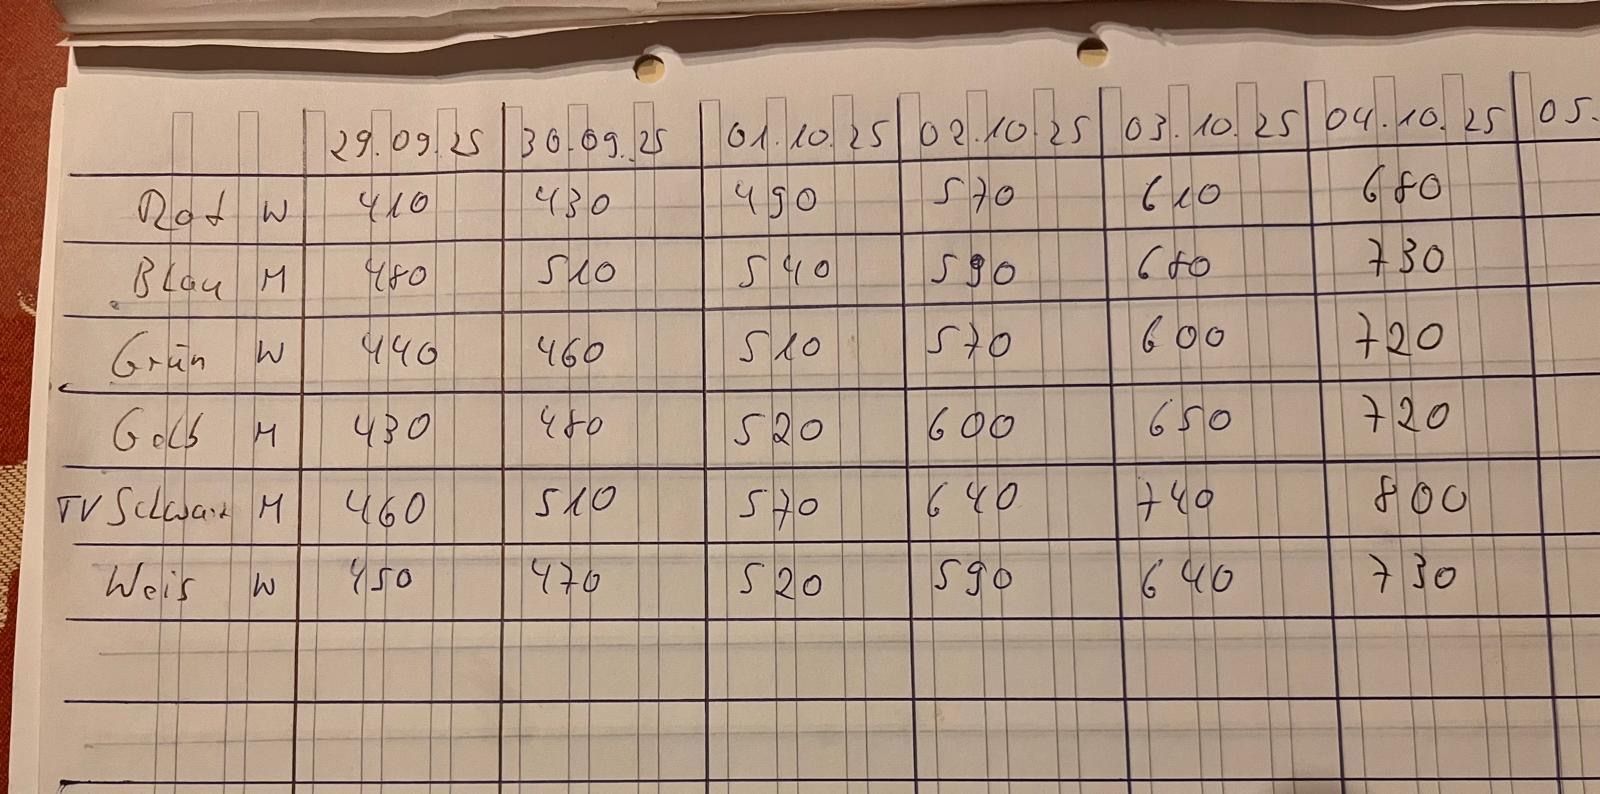 29.09.25 30.09.25 01.10.25 02.10.25 03.10.25 04.10.25 05.
Rot W 410 430 490 570 610 680
Blau M 480 510 540 590 680 730
Grün W 440 460 510 570 600 720
Gelb M 430 480 520 600 650 720
TV Schwarz M 460 510 570 640 740 800
Weis W 450 470 520 590 640 730